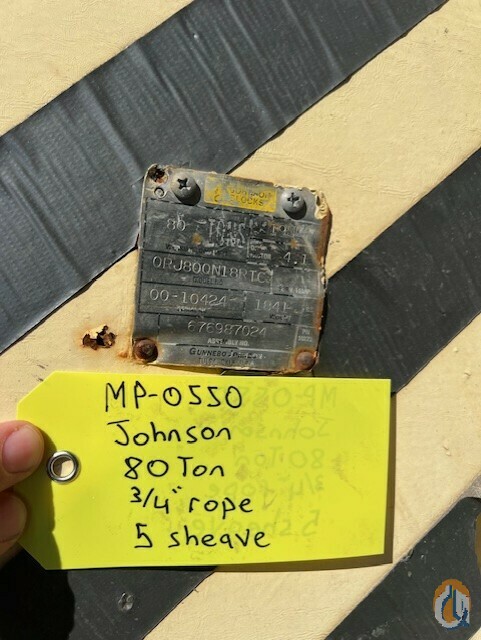 JOHNSON
BLOCKS
80
4.1
QRJ80QN18RTC
00-10424 1841
676987024
GUNNEBO JOHNSON
MP-0550
Johnson
80 Ton
3/4" rope
5 sheave